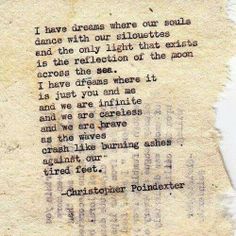 I have dreams where our souls
dance with our silouettes
and the only light that exists
is the reflection of the moon
across the sea.
I have dreams where it
is just you and me
and we are infinite
and we are careless
and we are brave
as the waves
crash like burning ashes
against our
tired feet.
-Christopher Poindexter